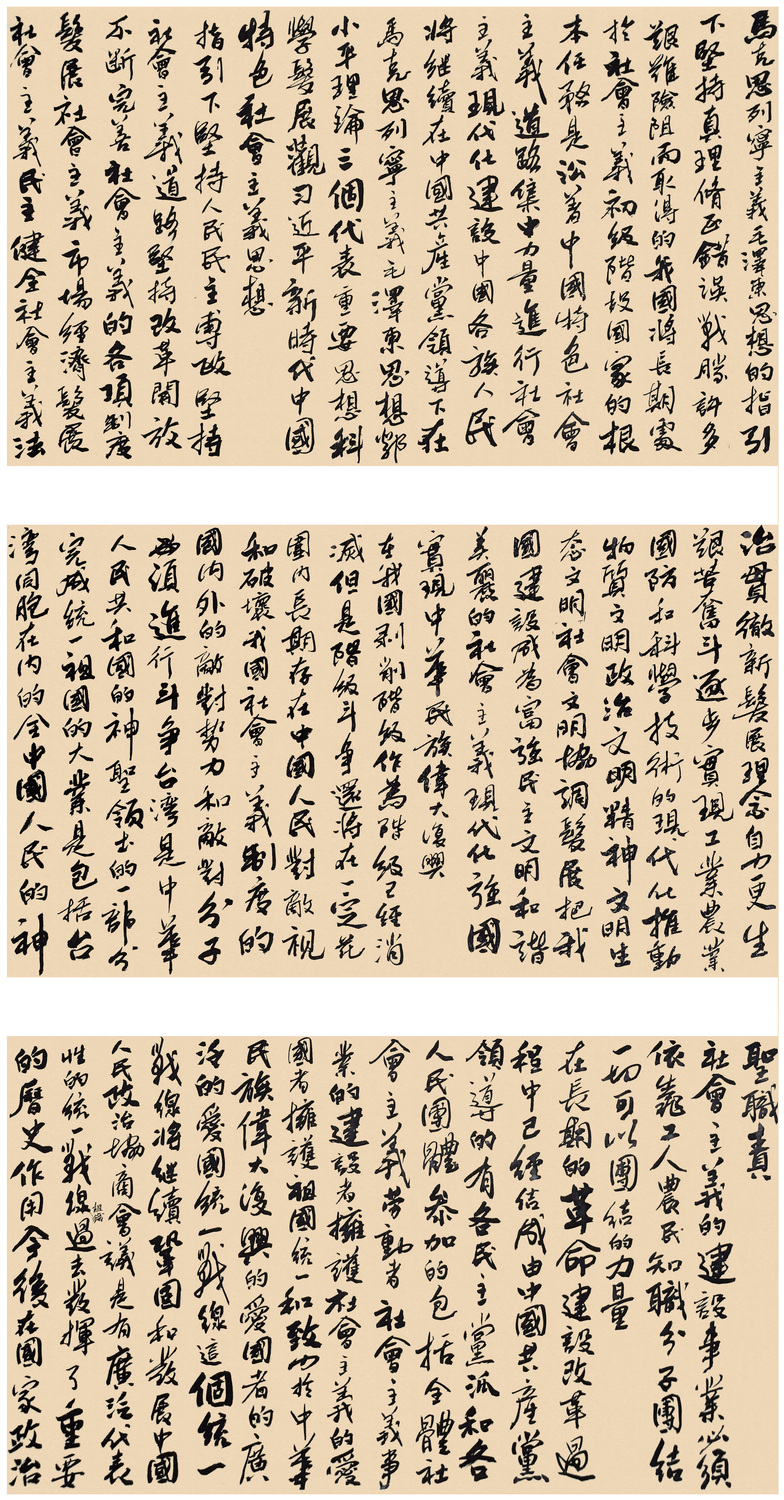 馬克思列寧主義毛澤東思想的指引
下堅持真理脩正錯誤戰勝許多
艱難險阻而取得的我國將長期處
於社會主義初級階段國家的根
本任務是沿著中國特色社會
主義道路集中力量進行社會
主義現代化建設中國各族人民
將繼續在中國共產黨領導下在
馬克思列寧主義毛澤東思想鄧
小平理論三個代表重要思想科
學髮展觀習近平新時代中國
特色社會主義思想
指引下堅持人民民主專政堅持
社會主義道路堅持改革開放
不斷完善社會主義的各項制度
髮展社會主義市場經濟髮展
社會主義民主健全社會主義法
治貫徹新髮展理念自力更生
艱苦奮斗逐步實現工業農業
國防和科學技術的現代化推動
物質文明政治文明精神文明生
态文明社會文明協調髮展把我
國建設成為富強民主文明和諧
美麗的社會主義現代化強國
實現中華民族偉大復興
在我國剥削階級作為階級已經消
滅但是階級斗争還將在一定范
圍内長期存在中國人民對敵視
和破壞我國社會主義制度的
國内外的敵對勢力和敵對分子
必須進行斗争台湾是中華
人民共和國的神聖領土的一部分
完成統一祖國的大業是包括台
湾同胞在内的全中國人民的神
聖職責
社會主義的建設事業必須
依靠工人農民知識分子團結
一切可以團結的力量
在長期的革命建設改革過
程中已經结成由中國共產黨
領導的有各民主黨派和各
人民團體參加的包括全體社
會主義劳動者社會主義事
業的建設者擁護社會主義的愛
國者擁護祖國統一和致力於中華
民族偉大復興的愛國者的廣
泛的愛國統一戰線這個統一
戰線將继續鞏固和發展中國
人民政治協商會議是有廣泛代表
性的統一戰線組織過去發揮了重要
的曆史作用今後在國家政治